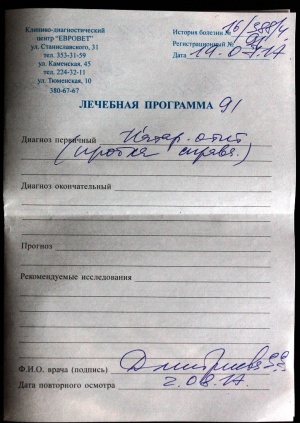 Клинико-диагностический
центр "ЕВРОВЕТ"
ул. Станиславского, 31
тел. 353-31-59
ул. Каменская, 45
тел. 224-32-11
ул. Тюменская, 10
380-67-67
История болезни № 16/388/4
Регистрационный №
Дата 19.07.17
ЛЕЧЕБНАЯ ПРОГРАММА 91
Диагноз первичный Катар. отит
справа.)
Диагноз окончательный
Прогноз
Рекомендуемые исследования
Ф.И.О. врача (подпись) Дмитриева
Дата повторного осмотра 2.08.17